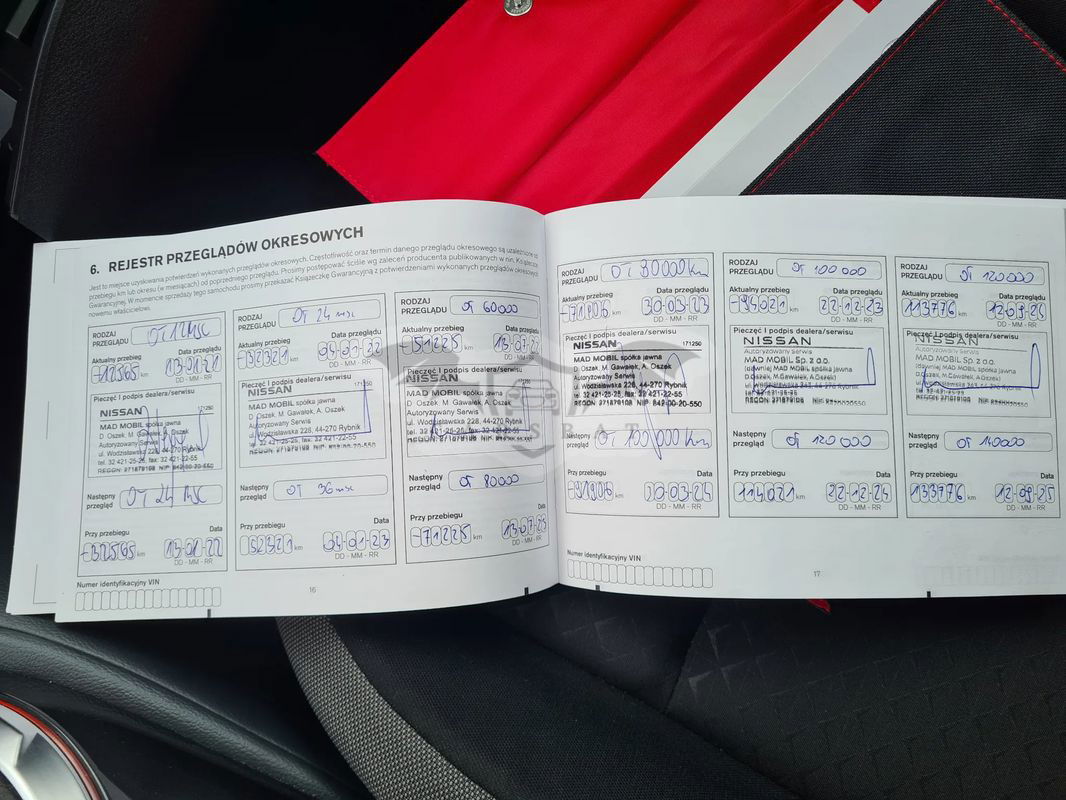 6. REJESTR PRZEGLĄDÓW OKRESOWYCH
Jest to miejsce uzyskiwania potwierdzeń wykonanych przeglądów okresowych. Częstotliwość oraz termin danego przeglądu okresowego są uzależnione od
przebiegu km lub okresu (w miesiącach) od poprzedniego przeglądu. Prosimy postępować ściśle wg zaleceń producenta publikowanych w nin. Książeczce
Gwarancyjnej. W momencie sprzedaży tego samochodu prosimy przekazać Książeczkę Gwarancyjną z potwierdzeniami wykonanych przeglądów okresowych
nowemu właścicielowi.
RODZAJ
PRZEGLĄDU OT 12 MSC
Aktualny przebieg Data przeglądu
12565 km 13-01-21
DD - MM - RR
Pieczęć I podpis dealera/serwisu
171250
NISSAN
MAD MOBIL spółka jawna
D. Oszek, M. Gawałek, A. Oszek
Autoryzowany Serwis
ul. Wodzisławska 228, 44-270 Rybnik
tel. 32 421-25-25, fax: 32 421-22-55
REGON: 271879108 NIP 642-00-20-550
Następny
przegląd OT 24 MSC
Przy przebiegu Data
32565 km 13-01-22
DD - MM - RR
Numer identyfikacyjny VIN
RODZAJ
PRZEGLĄDU OT 24 msc
Aktualny przebieg Data przeglądu
32321 km 04-01-22
DD - MM - RR
Pieczęć I podpis dealera/serwisu
171250
NISSAN
MAD MOBIL spółka jawna
D. Oszek, M. Gawałek, A. Oszek
Autoryzowany Serwis
ul. Wodzisławska 228, 44-270 Rybnik
tel. 32 421-25-25, fax: 32 421-22-55
REGON: 271879108 NIP 642-00-20-550
Następny
przegląd OT 36 msc
Przy przebiegu Data
52321 km 04-01-23
DD - MM - RR
16
RODZAJ
PRZEGLĄDU OT 60000
Aktualny przebieg Data przeglądu
51225 km 13-07-22
DD - MM - RR
Pieczęć I podpis dealera/serwisu
171250
NISSAN
MAD MOBIL spółka jawna
D. Oszek, M. Gawałek, A. Oszek
Autoryzowany Serwis
ul. Wodzisławska 228, 44-270 Rybnik
tel. 32 421-25-25, fax: 32 421-22-55
Następny
przegląd OT 80000
Przy przebiegu Data
71225 km 13-07-23
DD - MM - RR
RODZAJ
PRZEGLĄDU OT 80000 km
Aktualny przebieg Data przeglądu
71806 km 30-03-23
DD - MM - RR
Pieczęć I podpis dealera/serwisu
NISSAN 171250
MAD MOBIL spółka jawna
D. Oszek, M. Gawałek, A. Oszek
Autoryzowany Serwis
ul. Wodzisławska 228, 44-270 Rybnik
tel. 32 421-25-25, fax: 32 421-22-55
REGON: 271879108 NIP 642-00-20-550
Następny
przegląd OT 100 000 km
Przy przebiegu Data
91806 km 30-03-24
DD - MM - RR
Numer identyfikacyjny VIN
RODZAJ
PRZEGLĄDU OT 100 000
Aktualny przebieg Data przeglądu
94021 km 22-12-23
DD - MM - RR
Pieczęć I podpis dealera/serwisu
NISSAN
Autoryzowany Serwis
MAD MOBIL Sp. z o.o.
(dawniej MAD MOBIL spółka jawna
D.Oszek, M.Gawałek, A.Oszek)
Następny
przegląd OT 120 000
Przy przebiegu Data
114021 km 22-12-24
DD - MM - RR
17
RODZAJ
PRZEGLĄDU OT 120000
Aktualny przebieg Data przeglądu
113776 km 12-09-24
DD - MM - RR
Pieczęć I podpis dealera/serwisu
NISSAN
Autoryzowany Serwis
MAD MOBIL Sp. z o.o.
(dawniej MAD MOBIL spółka jawna
D.Oszek, M.Gawałek, A.Oszek)
Następny
przegląd OT 140000
Przy przebiegu Data
133776 km 12-09-25
DD - MM - RR